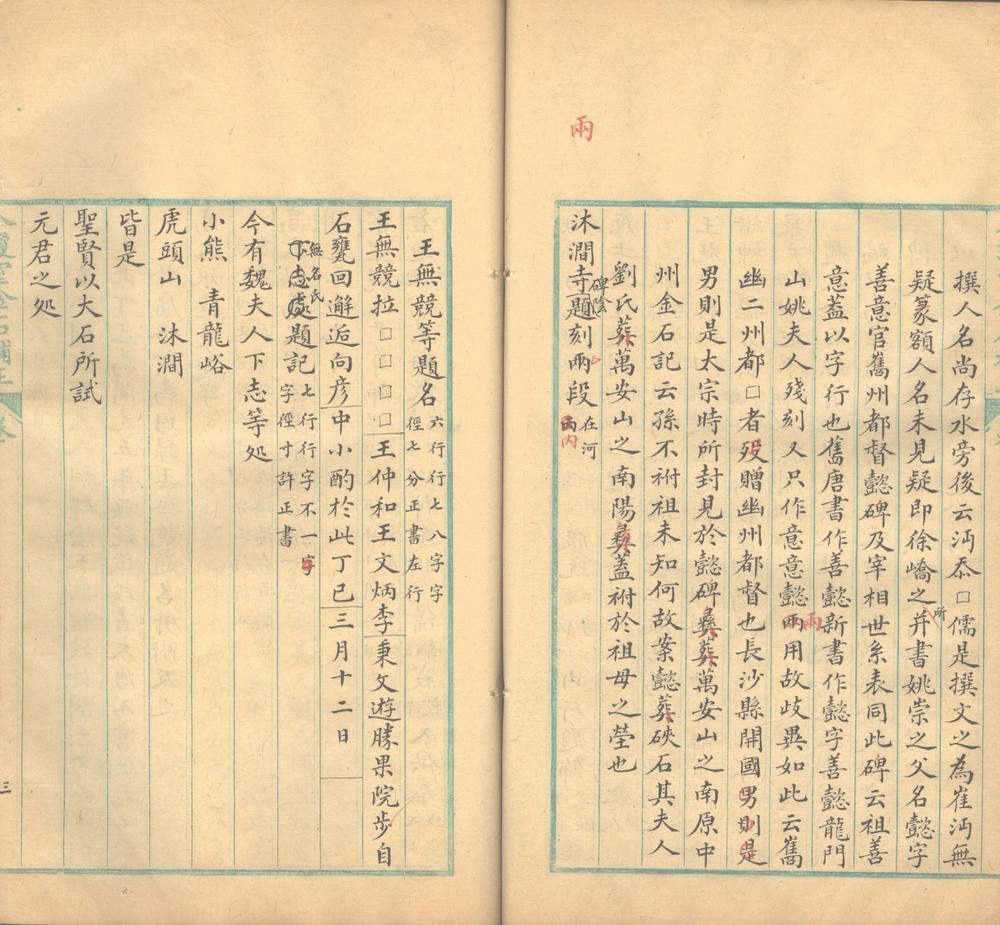 撰人名尚存水旁後云沔忝□儒是撰文之為崔沔無
疑篆額人名未見疑即徐嶠之并書姚崇之父名懿字
所
善意官巂州都督懿碑及宰相世系表同此碑云祖善
意蓋以字行也舊唐書作善懿新書作懿字善懿龍門
山姚夫人殘刻又只作意意懿兩用故歧異如此云巂
兩
幽二州都□者歿贈幽州都督也長沙縣開國男則是
男則是太宗時所封見於懿碑彝葬萬安山之南原中
州金石記云孫不祔祖未知何故案懿葬硤石其夫人
劉氏葬萬安山之南陽彝蓋祔於祖母之塋也
沐澗寺題刻兩段在河
內
碑陰
兩
王無競等題名六行行七八字字
徑七分正書左行
王無競拉□□□□王仲和王文炳李秉文遊勝果院步自
石甕回邂逅向彦中小酌於此丁巳三月十二日
無名氏
下志處題記七行行字不一字
字徑寸許正書
今有魏夫人下志等处
小熊 青龍峪
虎頭山 沐澗
皆是
聖賢以大石所試
元君之处
三